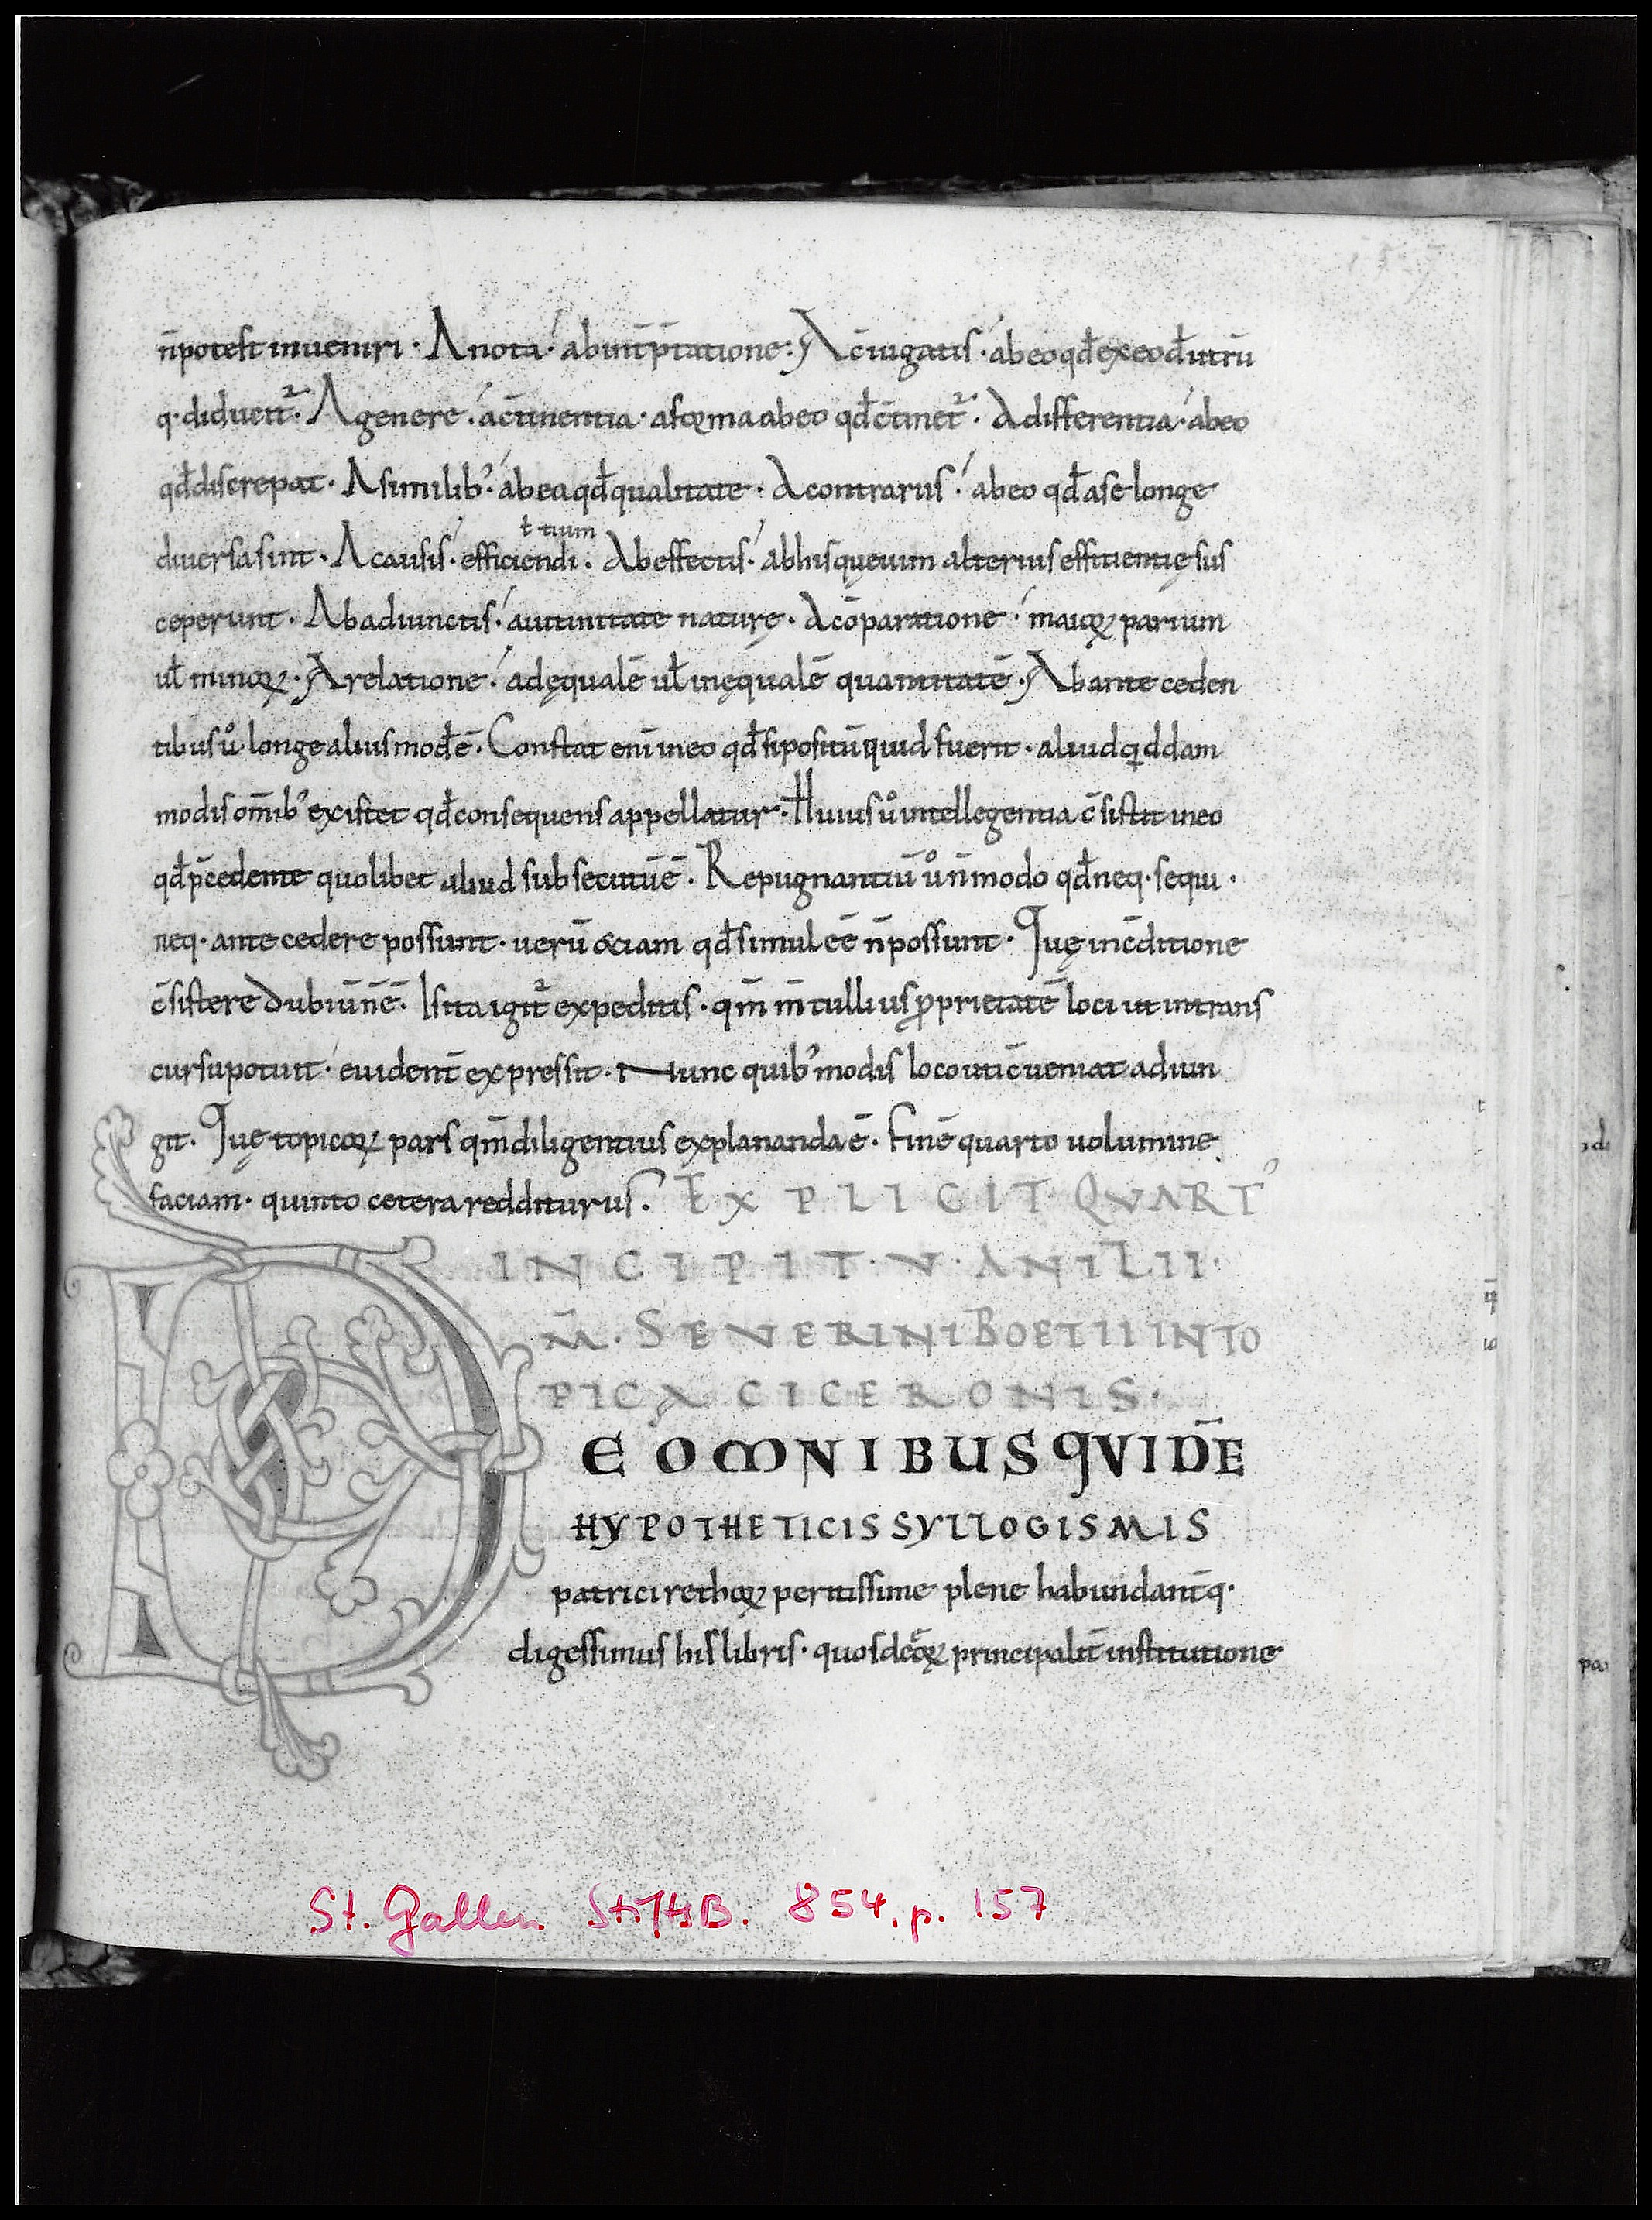 n̄ potest inueniri · A nota · ab int̄p̄tatione · A c̄iugatis · ab eo qđ ex eođ utrū
q· diducit᷑ · A genere · a c̄tinentia · a forma ab eo qđ c̄tinet᷑ · A differentia · ab eo
qđ discrepat · A similib' · ab ea qđ qualitate · A contrariis · ab eo qđ a se longe
ł tium
diuersa sint · A causis · efficiendi · Ab effectis · ab his quę uim alterius efficientię sus
ceperunt · Ab adiunctis · a uicinitate naturę · A cōparatione · maioꝝ parium
uł minoꝝ · A relatione · ad ęqualē uł inęqualē quantitatē · Ab ante ceden
tibus ů longe alius modꝰ ē · Constat enī in eo qđ si positū quid fuerit · aliud quiddam
modis om̄ib' existet qđ consequens appellatur · Huius ů intellegentia c̄sistit in eo
qđ p̄cedente quolibet aliud subsecutū ē · Repugnantiū ů n̄ modo qđ neq· sequi ·
neq· ante cedere possunt · uerū &iam qđ simul eē n̄ possunt · Quę in c̄ditione
c̄sistere dubiū n̄ ē · Is ita igit᷑ expeditis · qm̄ m̄ tullius ꝓprietatē loci ut in trans
cursu potuit · euident̄ expressit · Nunc quib' modis loco uti c̄ueniat adiun
git · Quę topicoꝝ pars qm̄ diligentius explananda ē · finē quarto uolumine
faciam · quinto cetera redditurus · EXPLICIT QVART'
INCIPIT · V · ANILII ·
M̄ · SEVERINI BOETII IN TO
PICA CICERONIS ·
DE OMNIBUS QVIDĒ
HYPOTHETICIS SYLLOGISMIS
patrici rethoꝝ peritissime plene habundant̄q·
digessimus his libris · quos de eoꝝ principalit̄ institutione
St. Gallen StiftsB. 854, p. 157